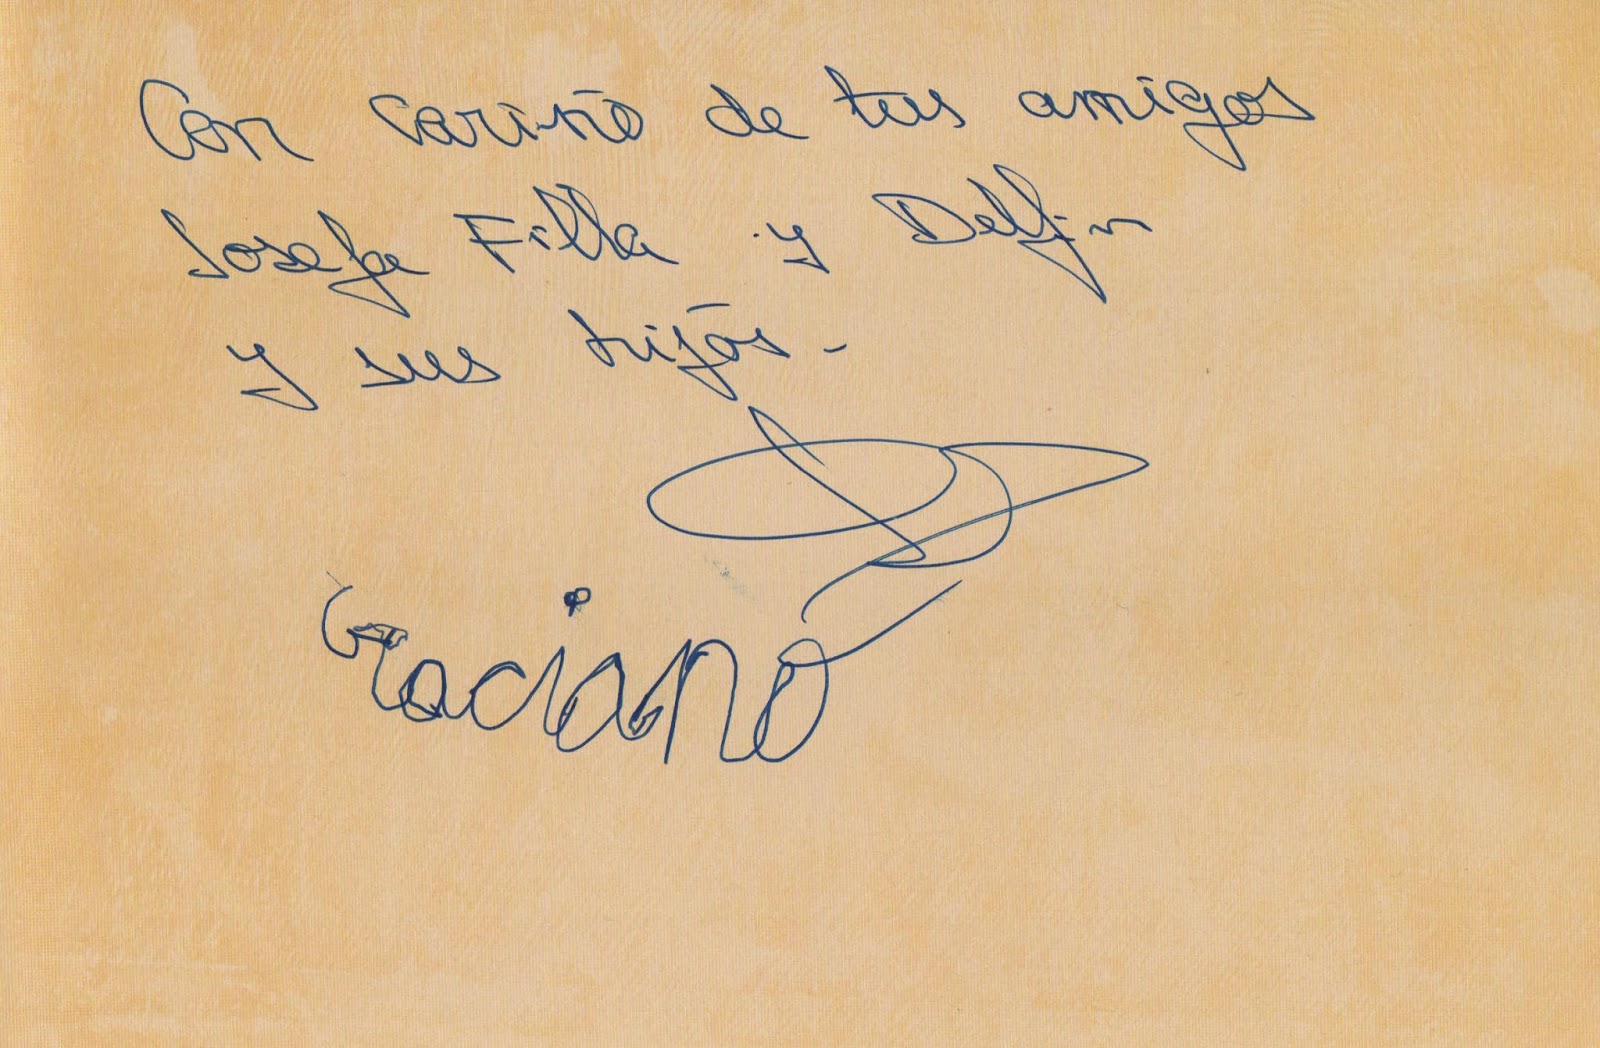 Con cariño de tus amigos
Josefa Filla y Delfin
y sus hijos.-
Graciano